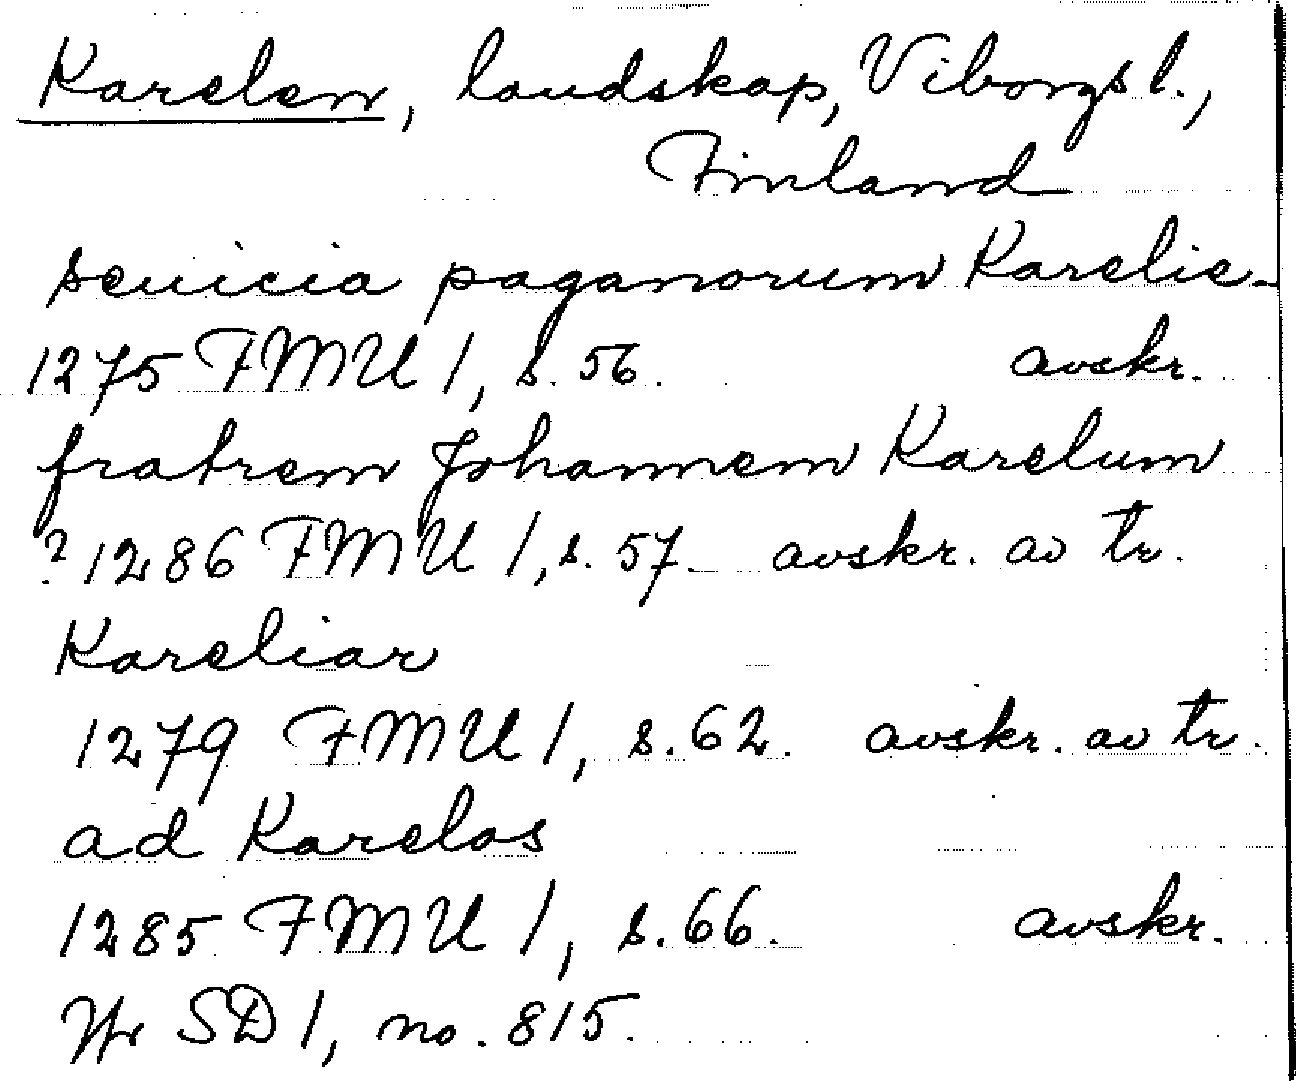 Karelen, landskap, Viborgs l.,
Finland
seuicia paganorum Karelie
1275 FMU 1, s. 56. avskr.
fratrem Johannem Karelum
? 1286 FMU 1, s. 57. avskr. av tr.
Kareliar
1279 FMU 1, s. 62. avskr. av tr.
ad Karelos
1285 FMU 1, s. 66. avskr.
Jfr SD 1, no. 815.